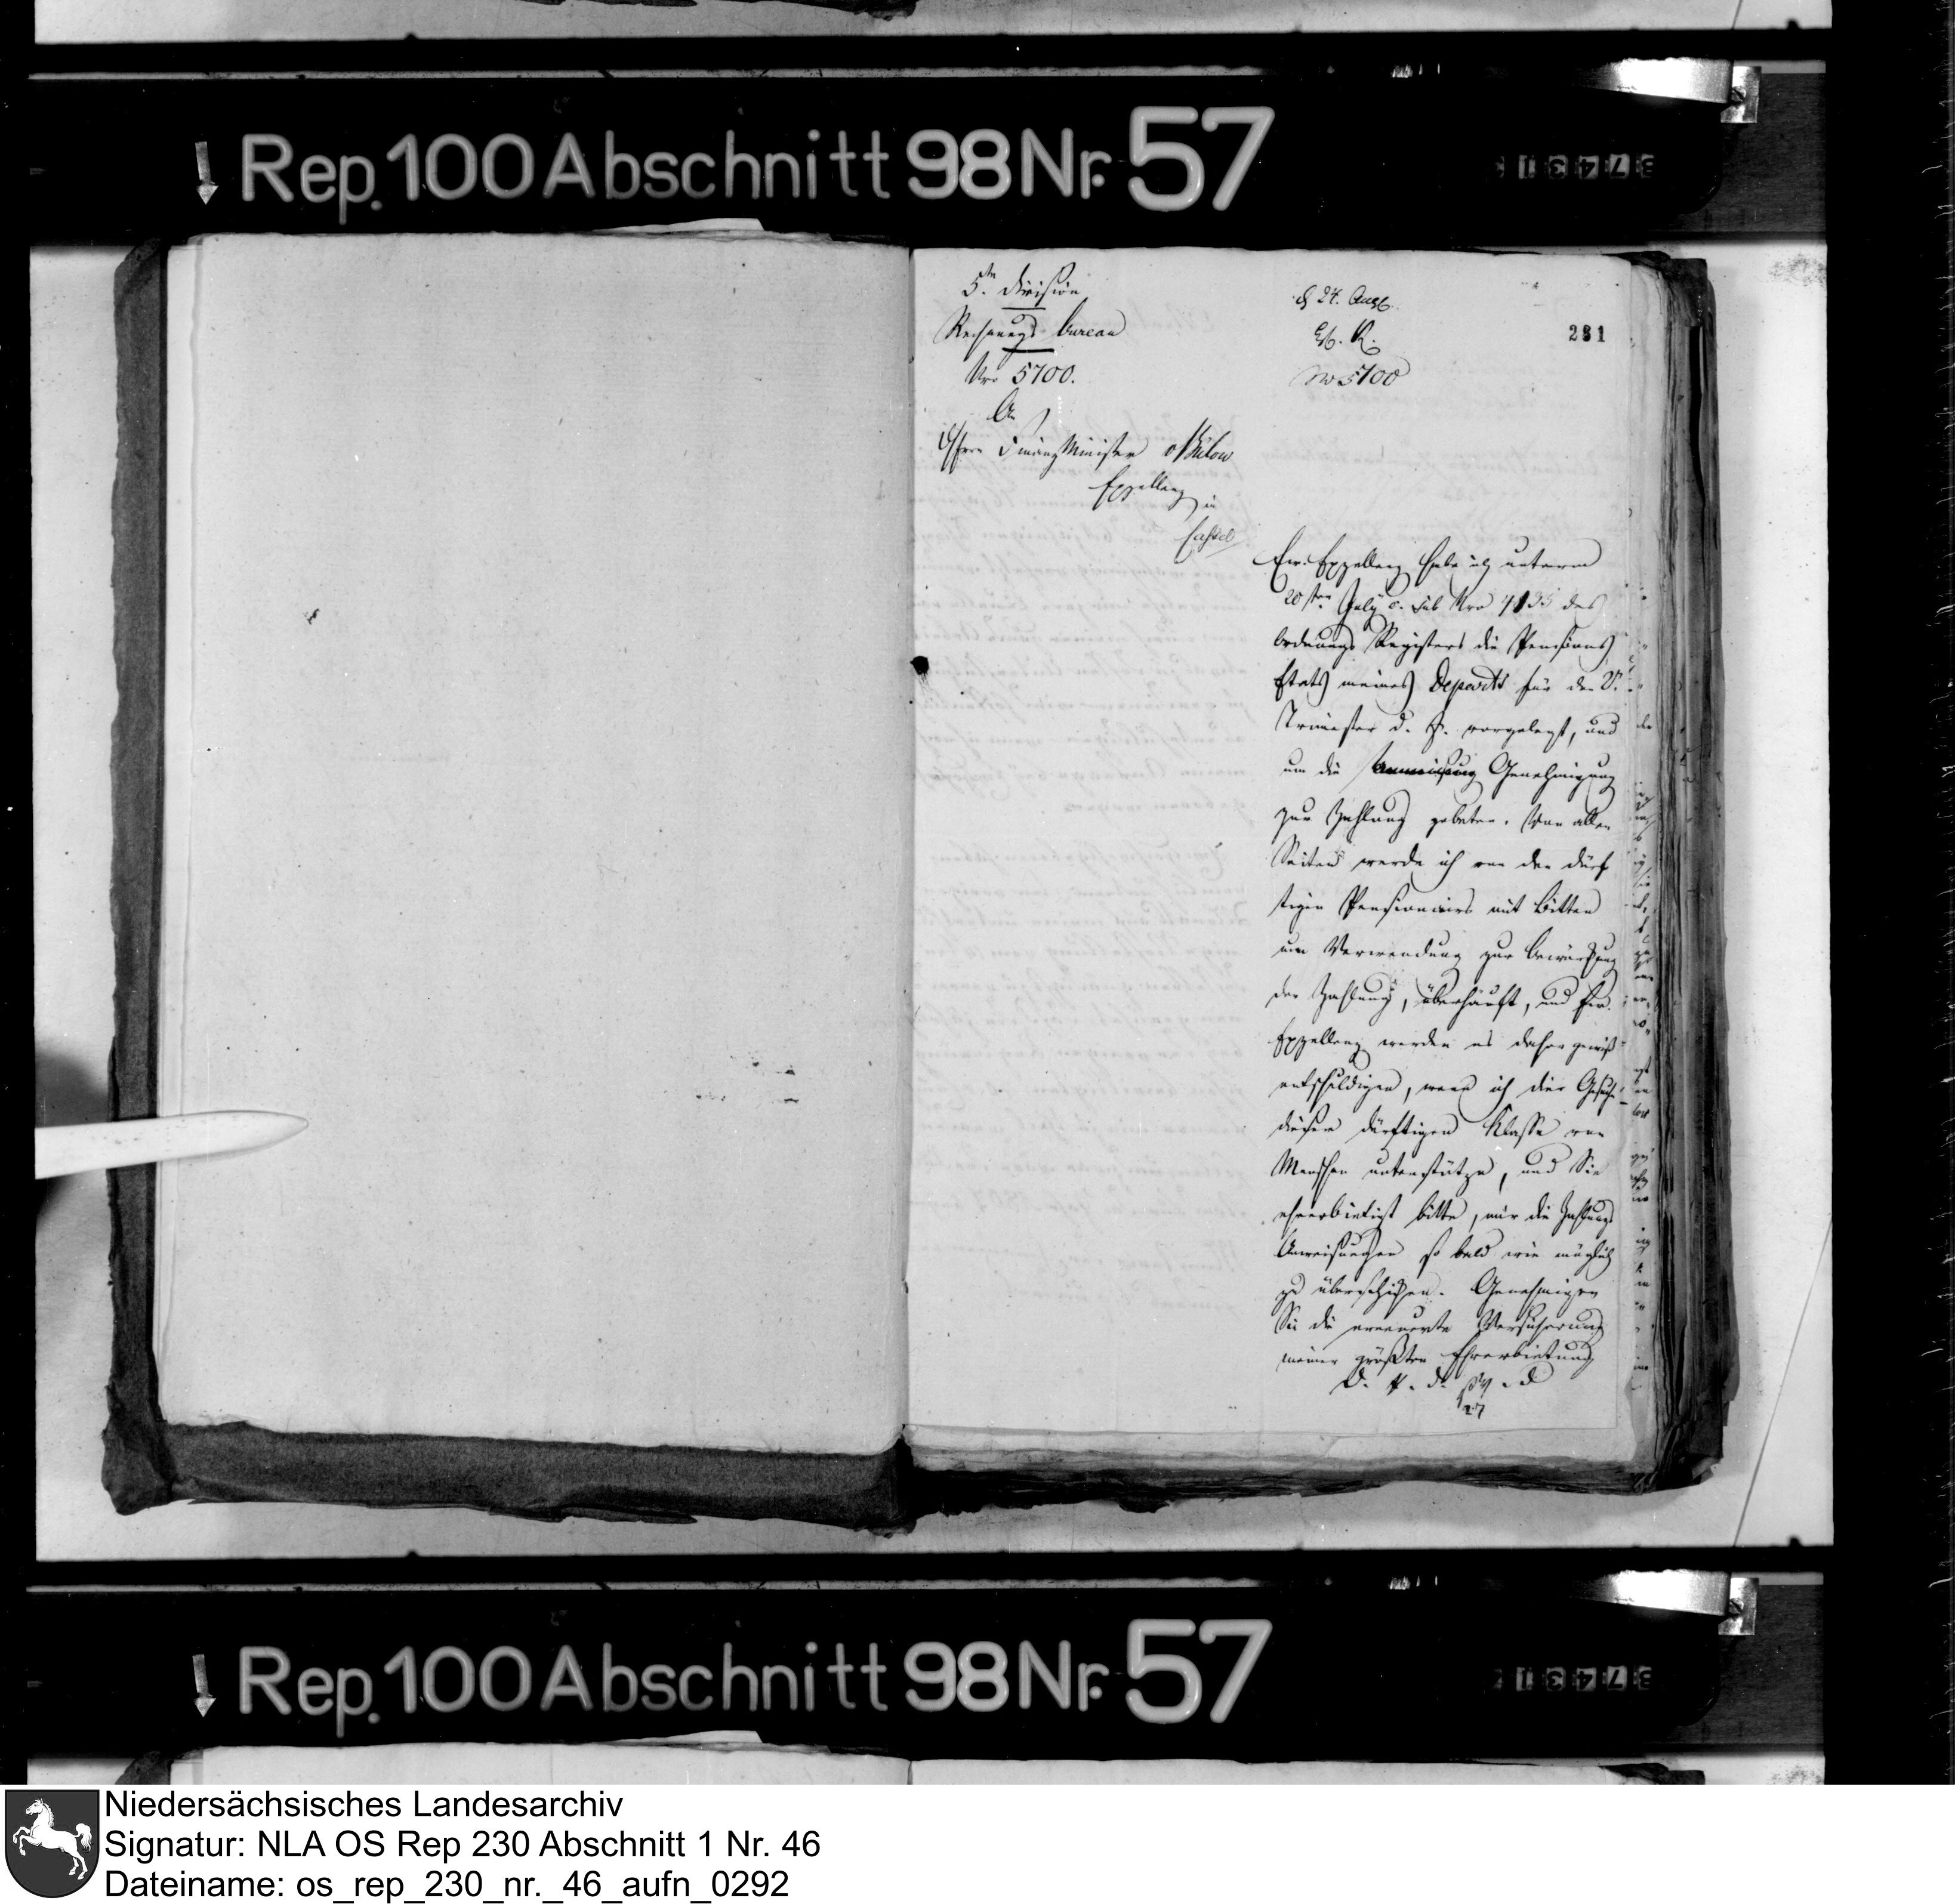 Rep. 100 Abschnitt 98 Nr. 57
5te Division
Rechnungs bureau
Nro 5700.
An
Herrn Finanz Minister v Bülow
Exzellenz in
Cassel
d 24. Aug
No 5700
281
Ew. Exzellenz habe ich unterm
20sten July c. sub Nro 4135 des
Ordnungs Registers die Pensions
Etats meines Departs für das 2te
Trimester d. J. vorgelegt, und
um die Anweisung Genehmigung
zur Zahlung gebeten. Von allen
Seiten werde ich von den dürf
tigen Pensionairs mit Bitten
um Verwendung zur Bewürkung
der Zahlung, überhäuft, und Ew.
Exzellenz werden es daher gewiß
entschuldigen, wenn ich die Gesuche
dieser dürftigen Klasse von
Menschen unterstütze, und Sie
ehrerbietigst bitte, mir die Zahlungs
Anweisungen so bald wie möglich
zu überschicken. Genehmigen
Sie die erneuerte Versicherung
meiner größten Ehrerbietung
D. P. d.
27
Rep. 100 Abschnitt 98 Nr. 57
Niedersächsisches Landesarchiv
Signatur: NLA OS Rep 230 Abschnitt 1 Nr. 46
Dateiname: os_rep_230_nr._46_aufn_0292